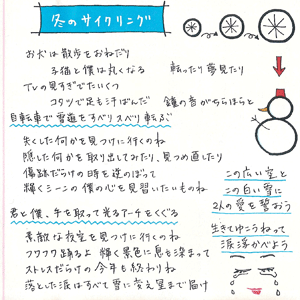 冬のサイクリング
お犬は散歩をおねだり
子猫と僕は丸くなる 転ったり夢見たり
TVの見すぎでたいくつ
コタツで足も汗ばんだ 鐘の音がちらほらと
自転車で雪道をすべりスベリ転ぶ
失くした何かを見つけに行くのね
隠した何かを取り出してみたり、見つめ直したり
傷跡だらけの時を逆のぼって
輝くシーンの僕の心を見習いたいものね
この広い空と
この白い雪に
2人の愛を誓おう
君と僕、手を取って光るアーチをくぐる
生きてゆこうねって
涙浮かべよう
素敵な夜空を見つけに行くのね
フワフワ踊るよ 輝く景色に息も染まって
ストレスだらけの今年も終わりね
落とした涙はすべて雪に変え星まで届け